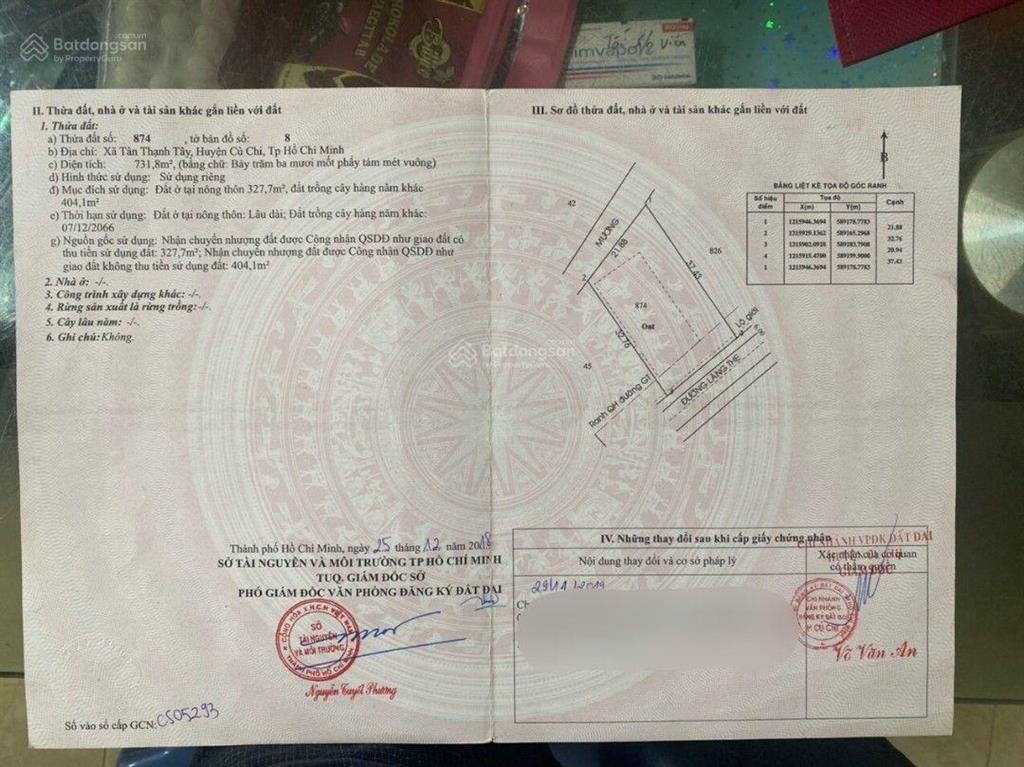 Batdongsan
.com.vn
by PropertyGuru
imvasor
Tối 1/2 viên
Batdongsan
.com.vn
by PropertyGuru
II. Thửa đất, nhà ở và tài sản khác gắn liền với đất
1. Thửa đất:
a) Thửa đất số: 874 , tờ bản đồ số: 8
b) Địa chỉ: Xã Tân Thạnh Tây, Huyện Củ Chi, Tp Hồ Chí Minh
c) Diện tích: 731,8m², (bằng chữ: Bảy trăm ba mươi mốt phẩy tám mét vuông)
d) Hình thức sử dụng: Sử dụng riêng
đ) Mục đích sử dụng: Đất ở tại nông thôn 327,7m², đất trồng cây hàng năm khác
404,1m²
e) Thời hạn sử dụng: Đất ở tại nông thôn: Lâu dài; Đất trồng cây hàng năm khác:
07/12/2066
g) Nguồn gốc sử dụng: Nhận chuyển nhượng đất được Công nhận QSDĐ như giao đất có
thu tiền sử dụng đất: 327,7m²; Nhận chuyển nhượng đất được Công nhận QSDĐ như
giao đất không thu tiền sử dụng đất: 404,1m²
2. Nhà ở: -/-.
3. Công trình xây dựng khác: -/-.
4. Rừng sản xuất là rừng trồng:-/-.
5. Cây lâu năm: -/-.
6. Ghi chú:Không.
Thành phố Hồ Chí Minh, ngày 25 tháng 12 năm 2018
SỞ TÀI NGUYÊN VÀ MÔI TRƯỜNG TP HỒ CHÍ MINH
TUQ. GIÁM ĐỐC SỞ
PHÓ GIÁM ĐỐC VĂN PHÒNG ĐĂNG KÝ ĐẤT ĐAI
CỘNG HÒA X.H.C.N VIỆT NAM
SỞ
TÀI NGUYÊN
VÀ MÔI TRƯỜNG
THÀNH PHỐ HỒ CHÍ MINH
Nguyễn Tuyết Phương
Số vào sổ cấp GCN: CS05293
III. Sơ đồ thửa đất, nhà ở và tài sản khác gắn liền với đất
B
BẢNG LIỆT KÊ TỌA ĐỘ GÓC RANH
Số hiệu điểm Tọa độ Cạnh
X(m) Y(m)
1 1215946.3694 589178.7783
21.88
2 1215929.1362 589165.2968
32.76
3 1215902.0918 589183.7908
20.94
4 1215915.4700 589199.9000
37.43
1 1215946.3694 589178.7783
42
MƯƠNG
21.88
1
826
37.43
2
874
Ont
32.76
45
Lộ giới
6.00
ĐƯỜNG LÁNG THE
Ranh QH đường GT
Batdongsan
IV. Những thay đổi sau khi cấp giấy chứng nhận
Nội dung thay đổi và cơ sở pháp lý
Xác nhận của cơ quan
có thẩm quyền
CHI NHÁNH VPĐK ĐẤT ĐAI
GIÁM ĐỐC
CHI NHÁNH
VĂN PHÒNG
ĐĂNG KÝ ĐẤT ĐAI
H. CỦ CHI
Võ Văn An